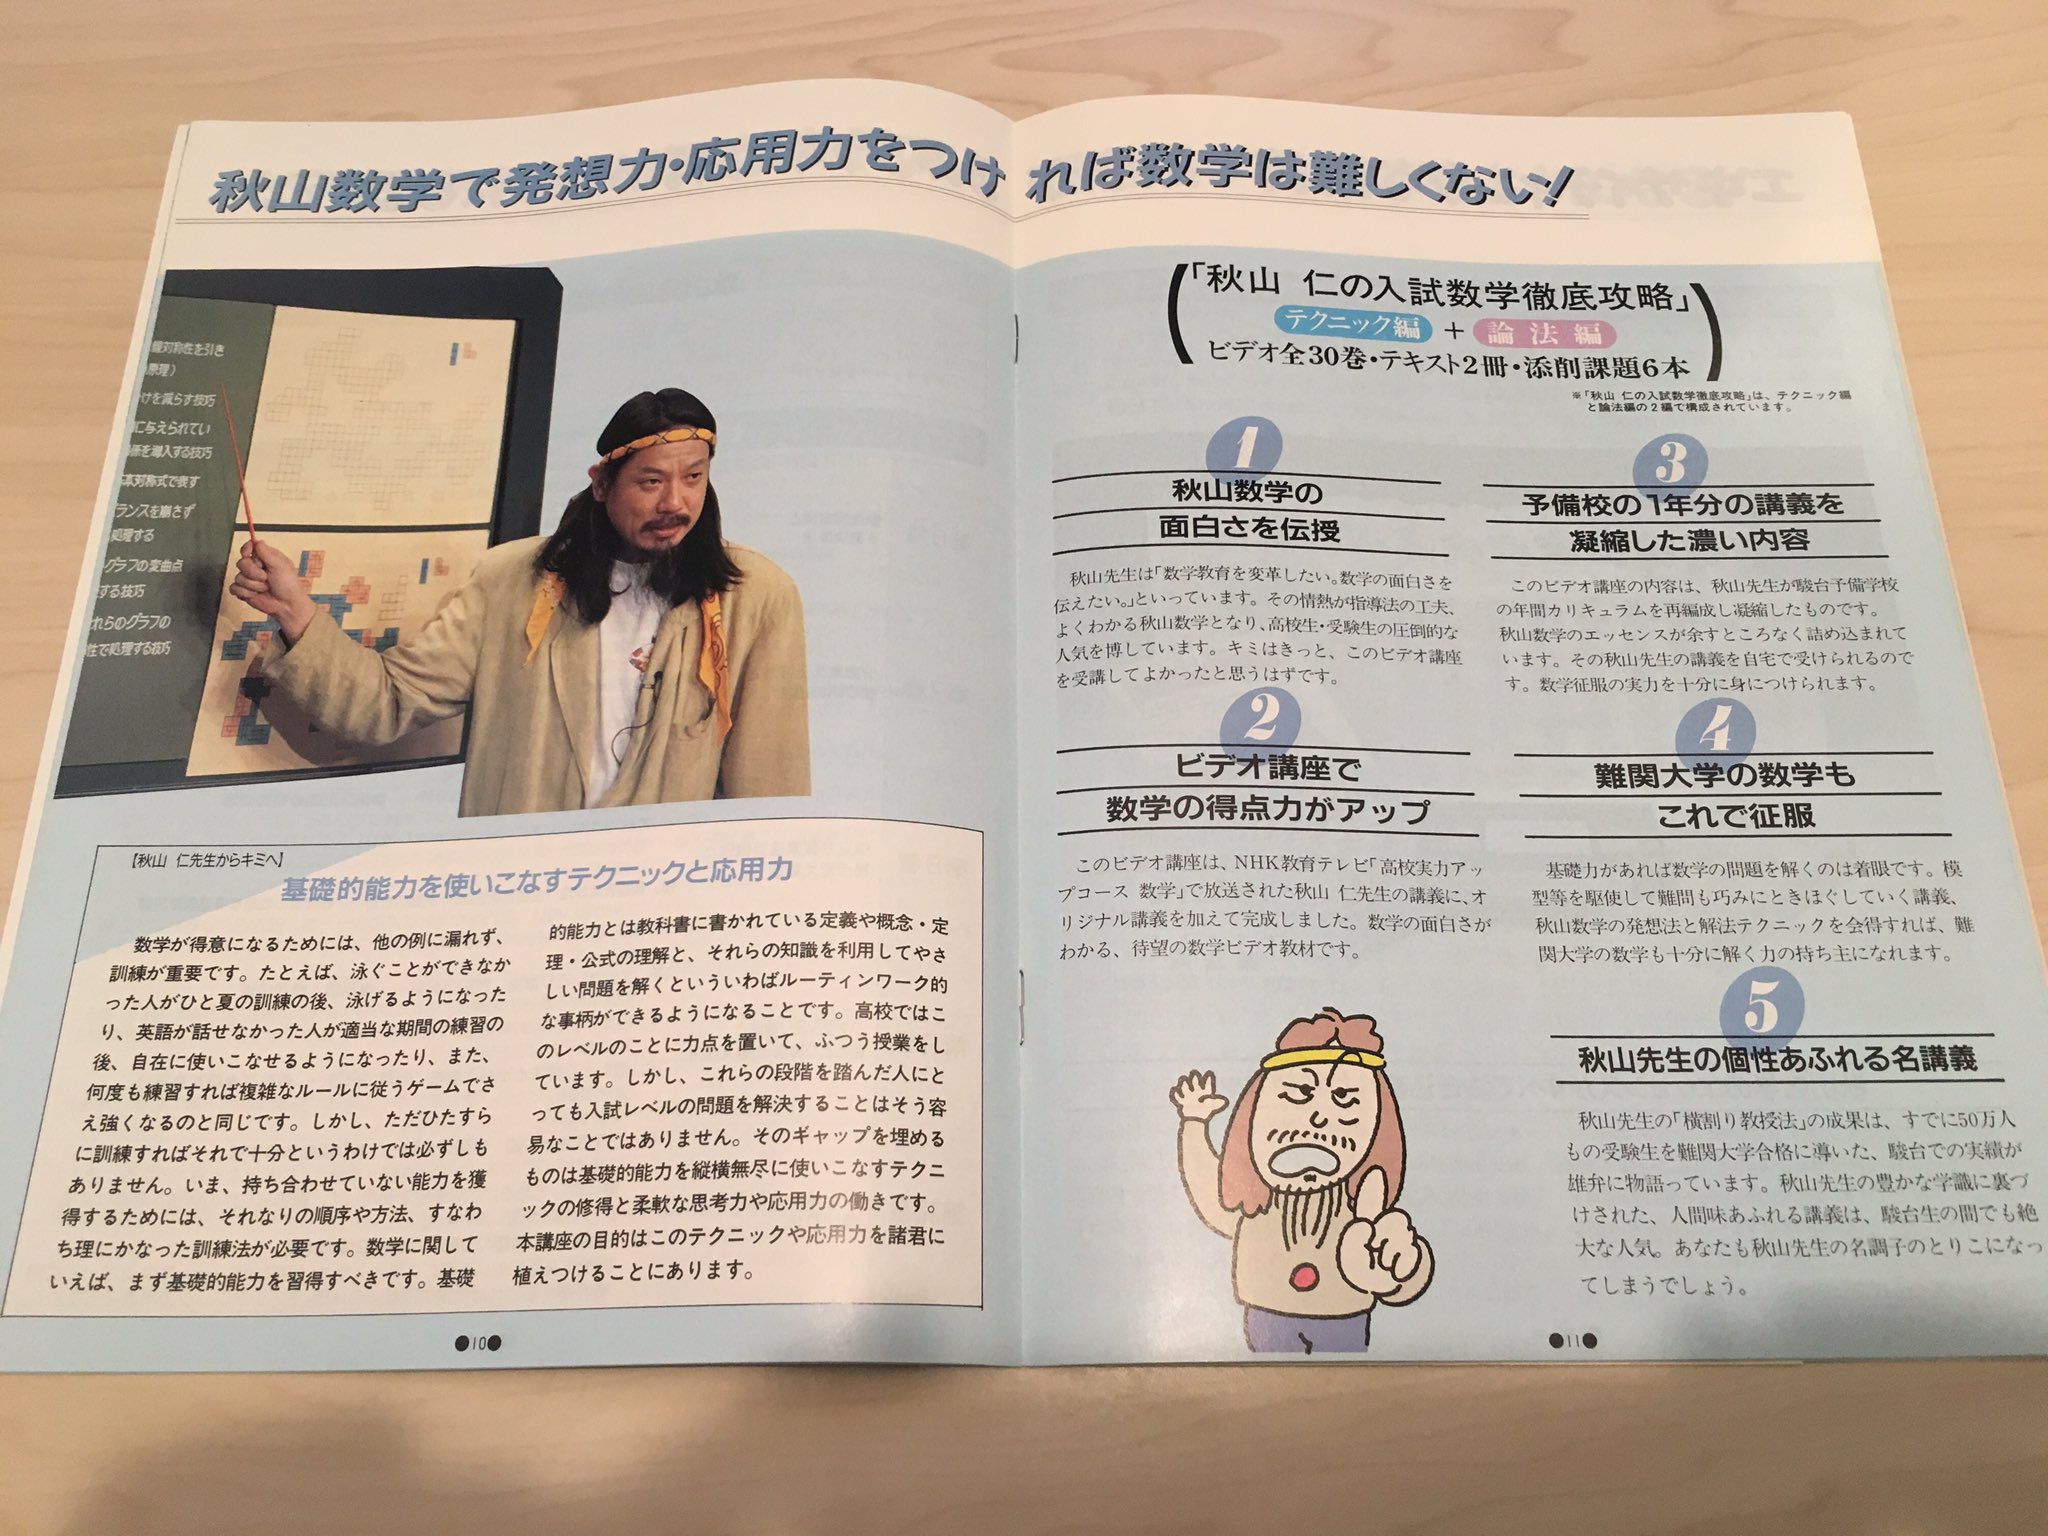 秋山数学で発想力・応用力をつければ数学は難しくない!
対称性を引き
原理)
けを減らす技巧
に与えられてい
係を導入する技巧
本対称式で表す
ランスを崩さず
処理する
グラフの変曲点
する技巧
れらのグラフの
性で処理する技巧
【秋山 仁先生からキミへ】
基礎的能力を使いこなすテクニックと応用力
数学が得意になるためには、他の例に漏れず、
訓練が重要です。たとえば、泳ぐことができなか
った人がひと夏の訓練の後、泳げるようになった
り、英語が話せなかった人が適当な期間の練習の
後、自在に使いこなせるようになったり、また、
何度も練習すれば複雑なルールに従うゲームでさ
え強くなるのと同じです。しかし、ただひたすら
に訓練すればそれで十分というわけでは必ずしも
ありません。いま、持ち合わせていない能力を獲
得するためには、それなりの順序や方法、すなわ
ち理にかなった訓練法が必要です。数学に関して
いえば、まず基礎的能力を習得すべきです。基礎
的能力とは教科書に書かれている定義や概念・定
理・公式の理解と、それらの知識を利用してやさ
しい問題を解くといういわばルーティンワーク的
な事柄ができるようになることです。高校ではこ
のレベルのことに力点を置いて、ふつう授業をし
ています。しかし、これらの段階を踏んだ人にと
っても入試レベルの問題を解決することはそう容
易なことではありません。そのギャップを埋める
ものは基礎的能力を縦横無尽に使いこなすテクニ
ックの修得と柔軟な思考力や応用力の働きです。
本講座の目的はこのテクニックや応用力を諸君に
植えつけることにあります。
●10●
「秋山 仁の入試数学徹底攻略」
テクニック編 + 論法編
ビデオ全30巻・テキスト2冊・添削課題6本
※「秋山 仁の入試数学徹底攻略」は、テクニック編
と論法編の2編で構成されています。
1
秋山数学の
面白さを伝授
秋山先生は「数学教育を変革したい。数学の面白さを
伝えたい。」といっています。その情熱が指導法の工夫、
よくわかる秋山数学となり、高校生・受験生の圧倒的な
人気を博しています。キミはきっと、このビデオ講座
を受講してよかったと思うはずです。
2
ビデオ講座で
数学の得点力がアップ
このビデオ講座は、NHK教育テレビ「高校実力アッ
プコース 数学」で放送された秋山 仁先生の講義に、オ
リジナル講義を加えて完成しました。数学の面白さが
わかる、待望の数学ビデオ教材です。
3
予備校の1年分の講義を
凝縮した濃い内容
このビデオ講座の内容は、秋山先生が駿台予備学校
の年間カリキュラムを再編成し凝縮したものです。
秋山数学のエッセンスが余すところなく詰め込まれて
います。その秋山先生の講義を自宅で受けられるので
す。数学征服の実力を十分に身につけられます。
4
難関大学の数学も
これで征服
基礎力があれば数学の問題を解くのは着眼です。模
型等を駆使して難問も巧みにときほぐしていく講義、
秋山数学の発想法と解法テクニックを会得すれば、難
関大学の数学も十分に解く力の持ち主になれます。
5
秋山先生の個性あふれる名講義
秋山先生の「横割り教授法」の成果は、すでに50万人
もの受験生を難関大学合格に導いた、駿台での実績が
雄弁に物語っています。秋山先生の豊かな学識に裏づ
けされた、人間味あふれる講義は、駿台生の間でも絶
大な人気。あなたも秋山先生の名調子のとりこになっ
てしまうでしょう。
●11●